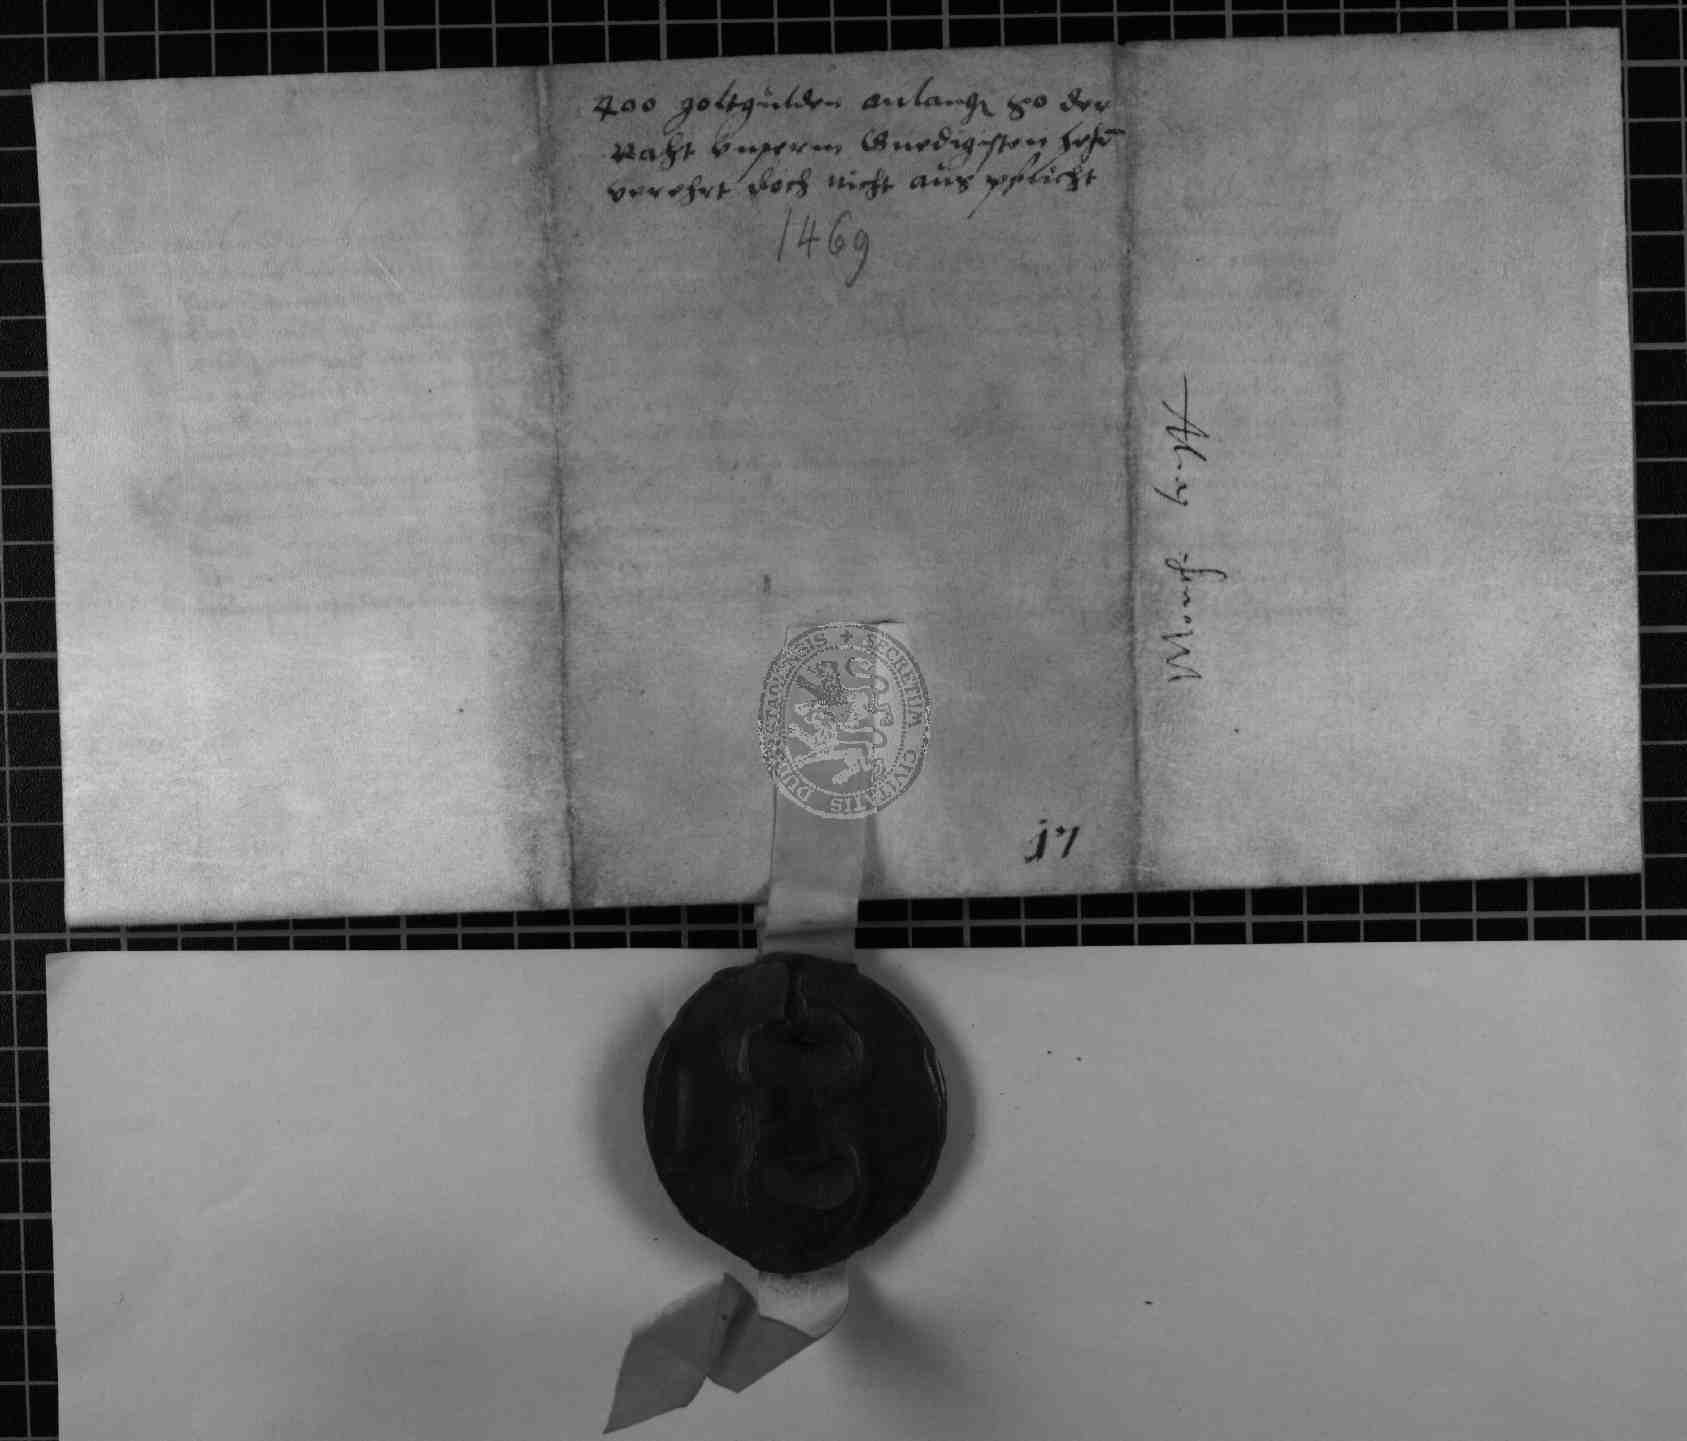 400 goltgulden anlang so der
Raht unserm Gnedigisten hern
verehrt doch nicht aus pflicht
1469
17
SECRETUM CIVITATIS DUDERSTADENSIS